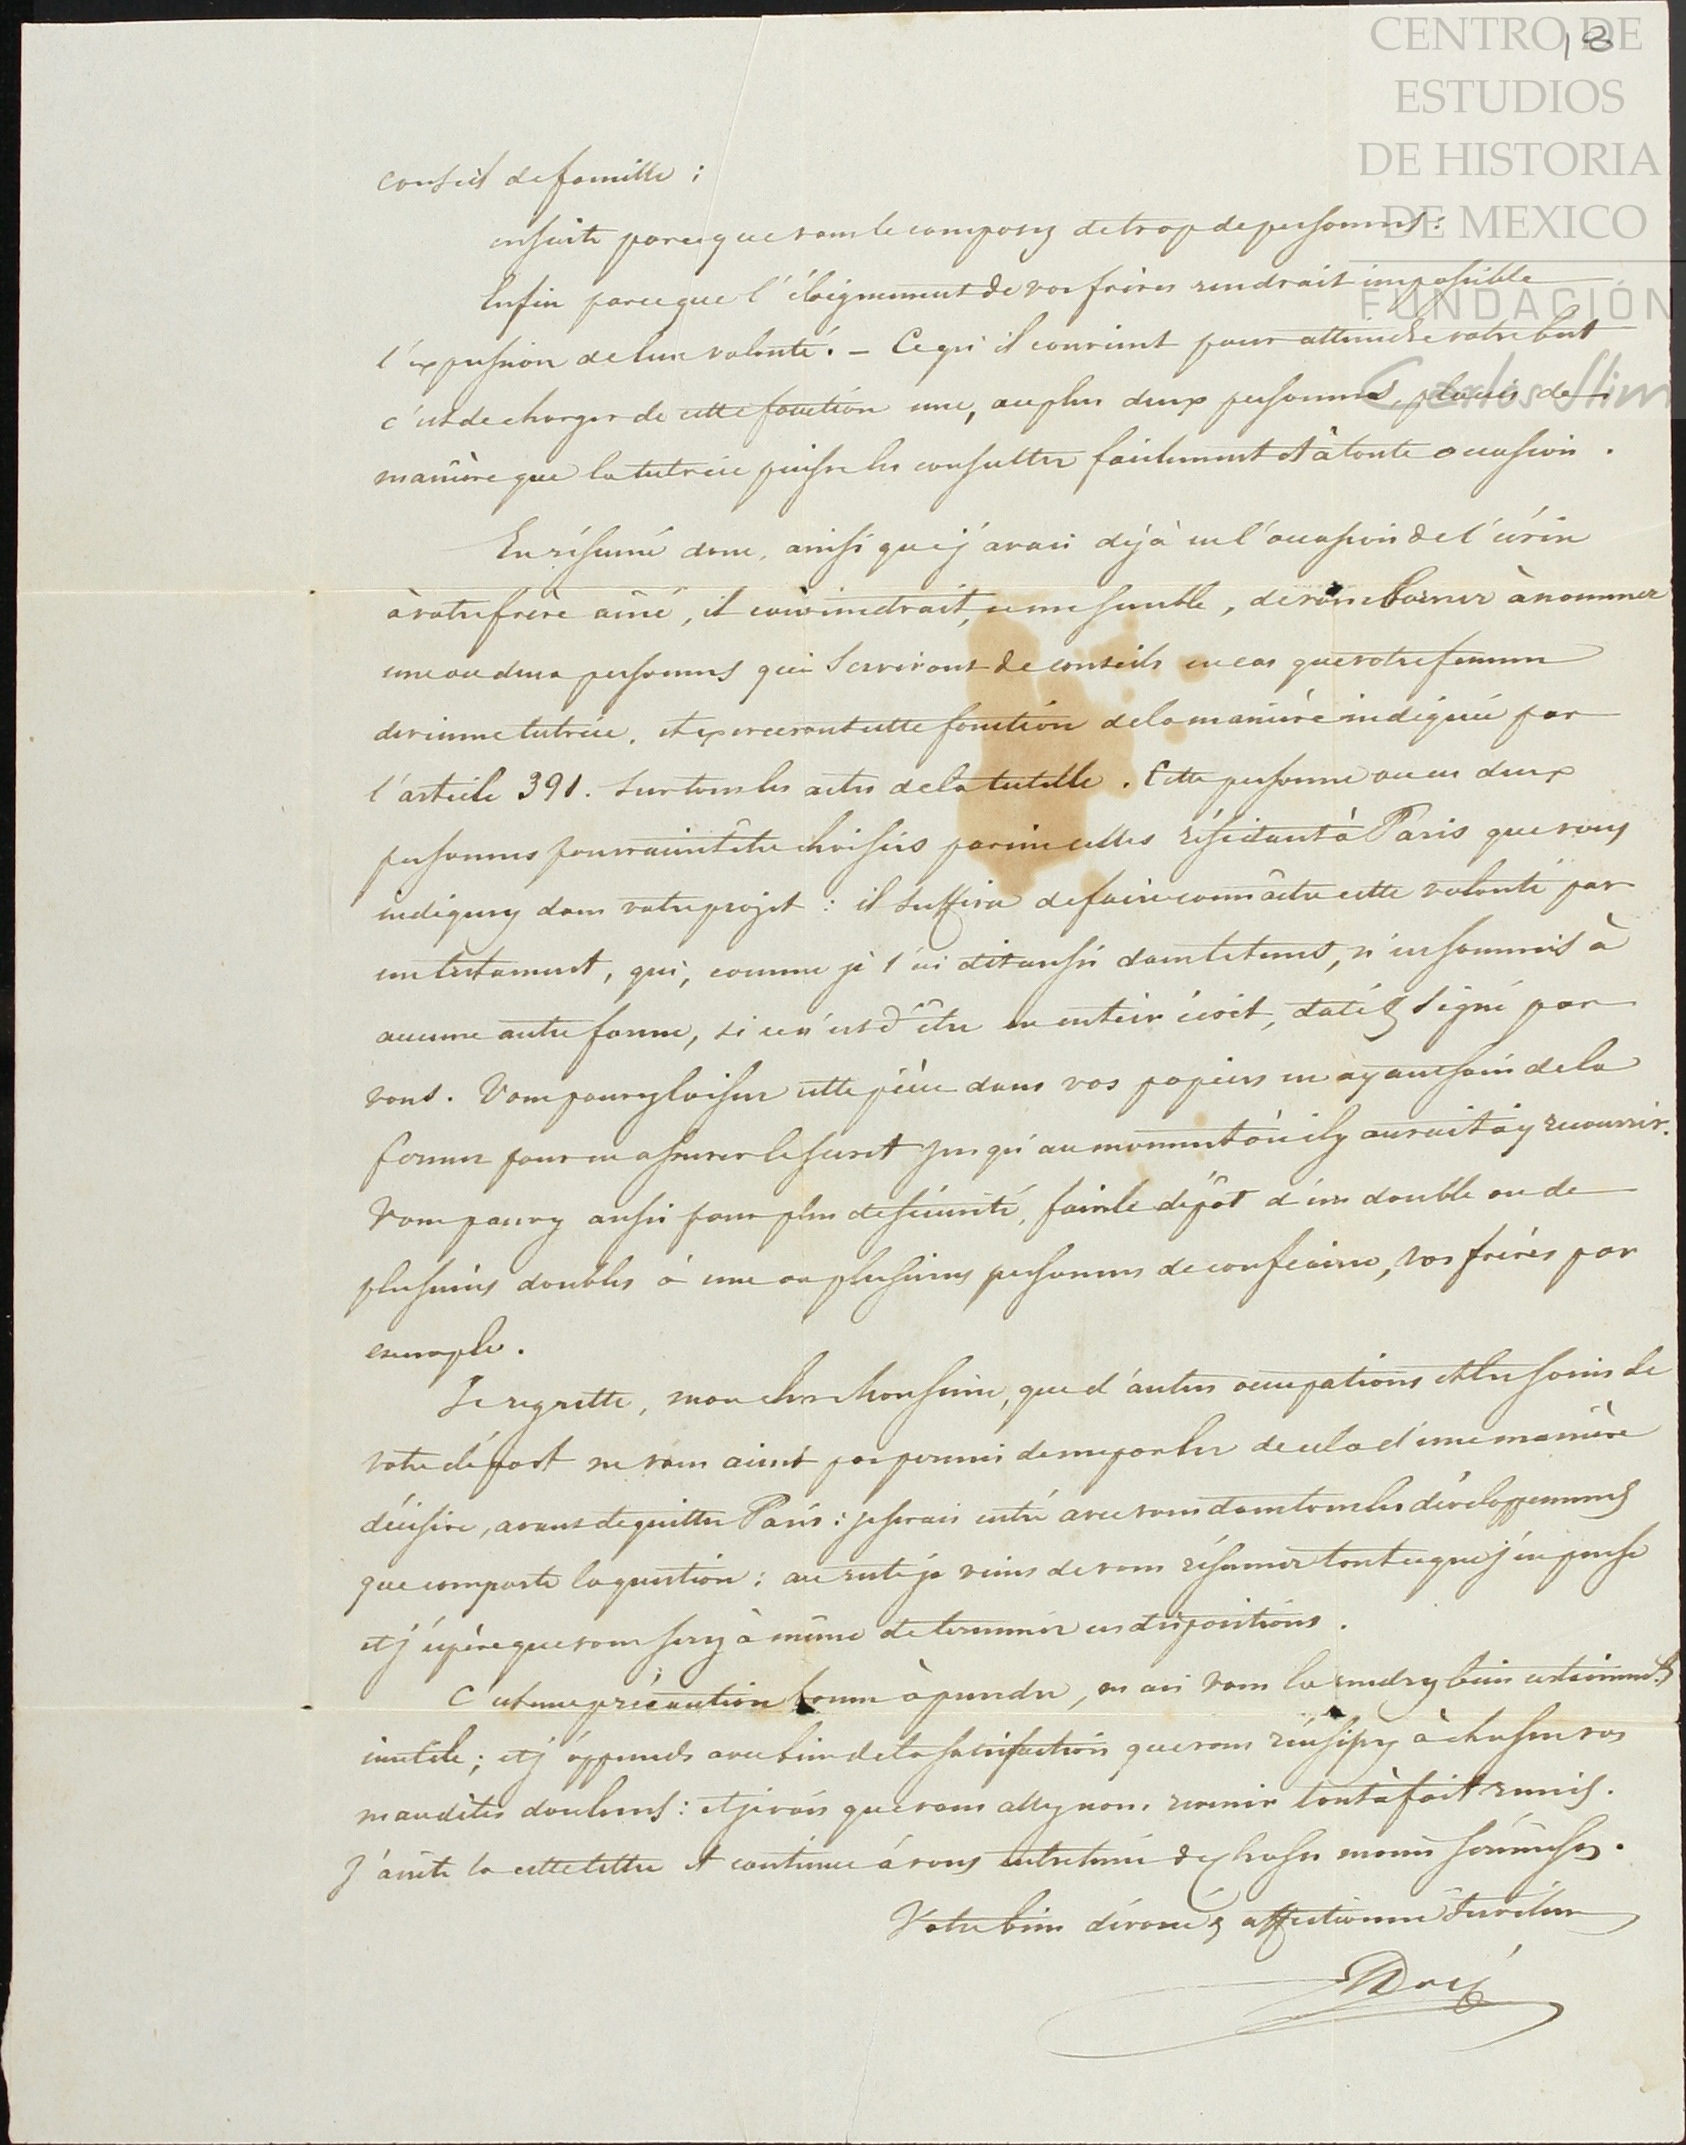 CENTRO DE
ESTUDIOS
DE HISTORIA
DE MEXICO
FUNDACIÓN
Carlos Slim
18
conseil de famille ;
ensuite parceque vous le composez de trop de personnes :
Enfin parceque l'éloignement de vos frères rendrait impossible
l'expression de leur volonté. – Ce qu'il convient pour atteindre votre but
c'est de charger de cette fonction une, au plus deux personnes, placées de
manière que la tutrice puisse les consulter facilement et à toute occasion .
En résumé donc, ainsi que j'avais déjà eu l'occasion de l'écrire
à votre frère ainé, il conviendrait, ce me semble, de vous borner à nommer
une ou deux personnes qui serviront de conseils en cas que votre femme
devienne tutrice, et exerceront cette fonction de la manière indiquée par
l'article 391. sur tous les actes de la tutelle . Cette personne ou ces deux
personnes pourraient être choisies parmi celles résidant à Paris que vous
indiquez dans votre projet : il suffira de faire connaître cette volonté par
un testament, qui, comme je l'ai dit aussi dans le tems, n'est soumis à
aucune autre forme, si ce n'est d'être en entier écrit, daté & signé par
vous. Vous pourrez laisser cette pièce dans vos papiers en ayant soin de la
fermer pour en assurer le secret jusqu'au moment où il y aurait à y recourrir.
Vous pourrez aussi pour plus de sécurité, faire le dépôt d'un double ou de
plusieurs doubles à une ou plusieurs personnes de confiance, vos frères par
exemple .
Je regrette, mon cher Monsieur, que d'autres occupations et les soins de
votre départ ne vous aient pas permis de me parler de cela d'une manière
décisive, avant de quitter Paris : je serais entré avec vous dans tous les développemens
que comporte la question : au reste je viens de vous résumer tout ce que j'en pense
et j'espère que vous serez à même de terminer ces dispositions .
C'est une précaution bonne à prendre, mais vous la rendrez bien certainement
inutile ; et j'apprends avec bien de la satisfaction que vous réussissez à chasser vos
maudites douleurs : et je vois que vous allez nous revenir tout à fait remis .
J'arrête là cette lettre et continue à vous entretenir de choses moins sérieuses .
Votre bien dévoué & affectionné Serviteur